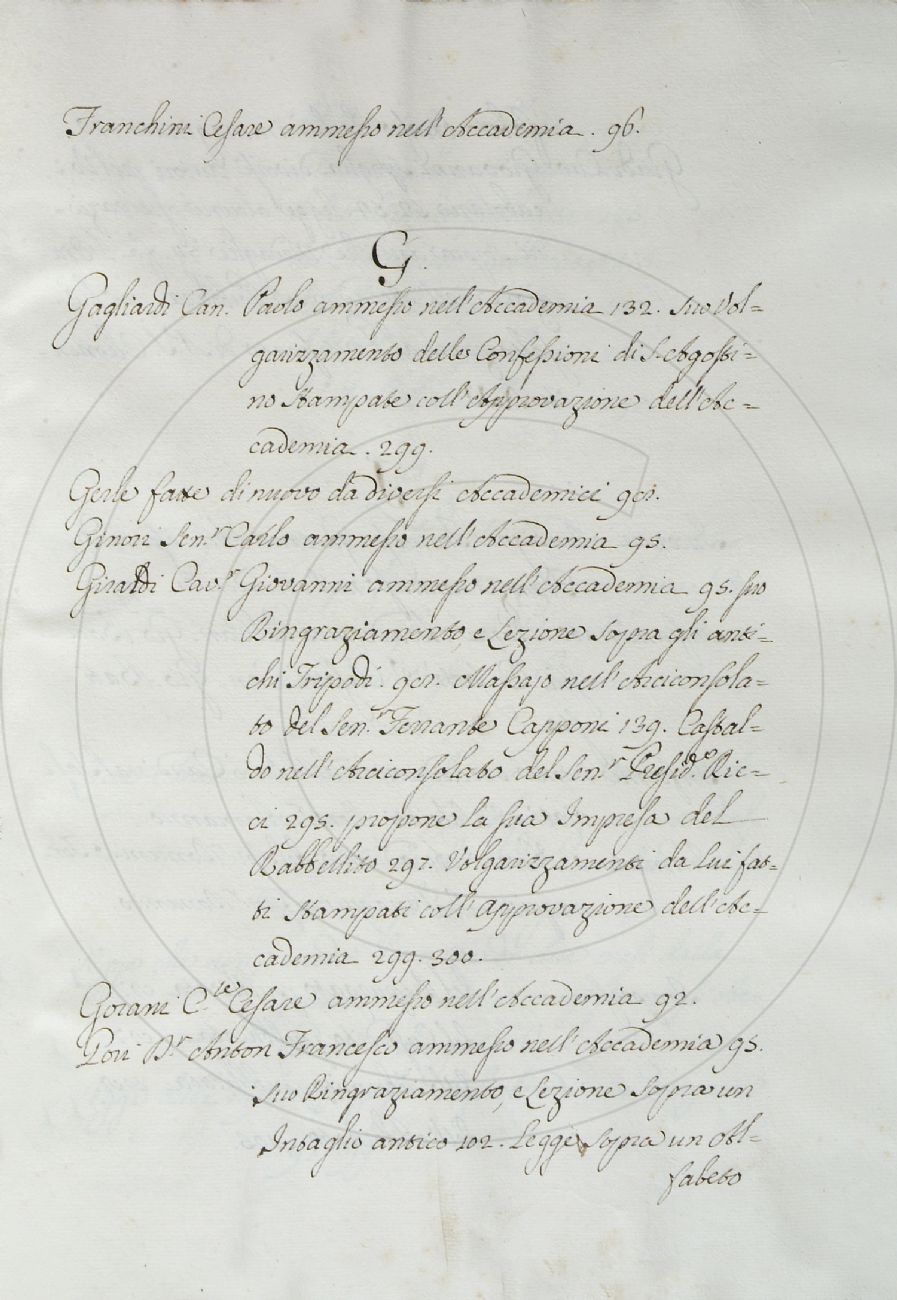 Franchini Cesare ammesso nell'Accademia. 96.
G.
Gagliardi Can. Paolo ammesso nell'Accademia 132. suo Vol=
garizzamento delle Confessioni di S. Agosti=
no Stampate coll'Approvazione dell'Ac=
cademia. 299.
Gerle fatte di nuovo da diversi Accademici 97.
Ginori Sen.r Carlo ammesso nell'Accademia 95.
Giraldi Cav.r Giovanni ammesso nell'Accademia 95. suo
Ringraziamento, e Lezione sopra gli anti=
chi Tripodi. 97. Massajo nell'Arciconsola=
to del Sen.r Ferrante Capponi 139. Castal=
do nell'Arciconsolato del Sen.r Presid.e Ric=
ci 295. propone la sua Impresa del
Rabbellito 297. Volgarizzamenti da Lui fat=
ti Stampati coll'Approvazione dell'Ac=
cademia 299. 300.
Gorani C.te Cesare ammesso nell'Accademia 92.
Gori D.r Anton Francesco ammesso nell'Accademia 95.
suo Ringraziamento, e Lezione sopra un
Intaglio antico 102. Legge sopra un Al=
fabeto